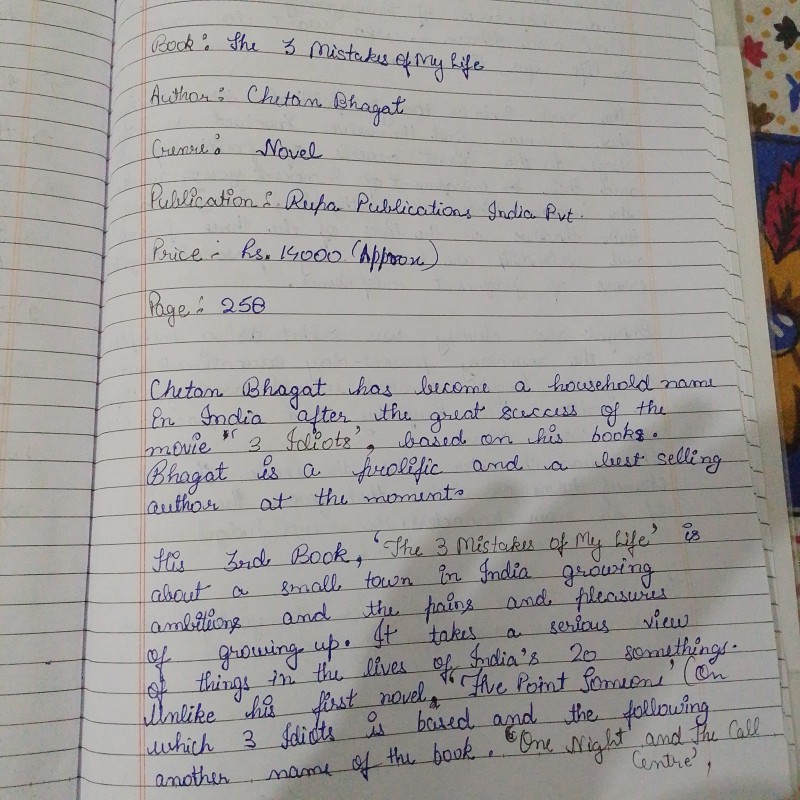 Book: The 3 Mistakes of My Life
Author: Chetan Bhagat
Genre: Novel
Publication: Rupa Publications India Pvt.
Price: Rs. 14000 (Approx)
Page: 258
Chetan Bhagat has become a household name
in India after the great success of the
movie "3 Idiots", based on his books.
Bhagat is a prolific and a best selling
author at the moment.
His 3rd Book, 'The 3 Mistakes of My Life' is
about a small town in India growing
ambitions and the pains and pleasures
of growing up. It takes a serious view
of things in the lives of India's 20 somethings.
Unlike his first novel, "Five Point Someone' (On
which 3 Idiots is based and the following
another name of the book. "One Night and the Call
Centre',